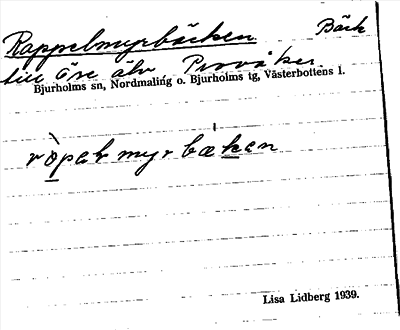 Rappelmyrbäcken Bäck
till Öre älv Provåker.
Bjurholms sn, Nordmaling o. Bjurholms tg, Västerbottens l.
ròpelmyrbæken
Lisa Lidberg 1939.